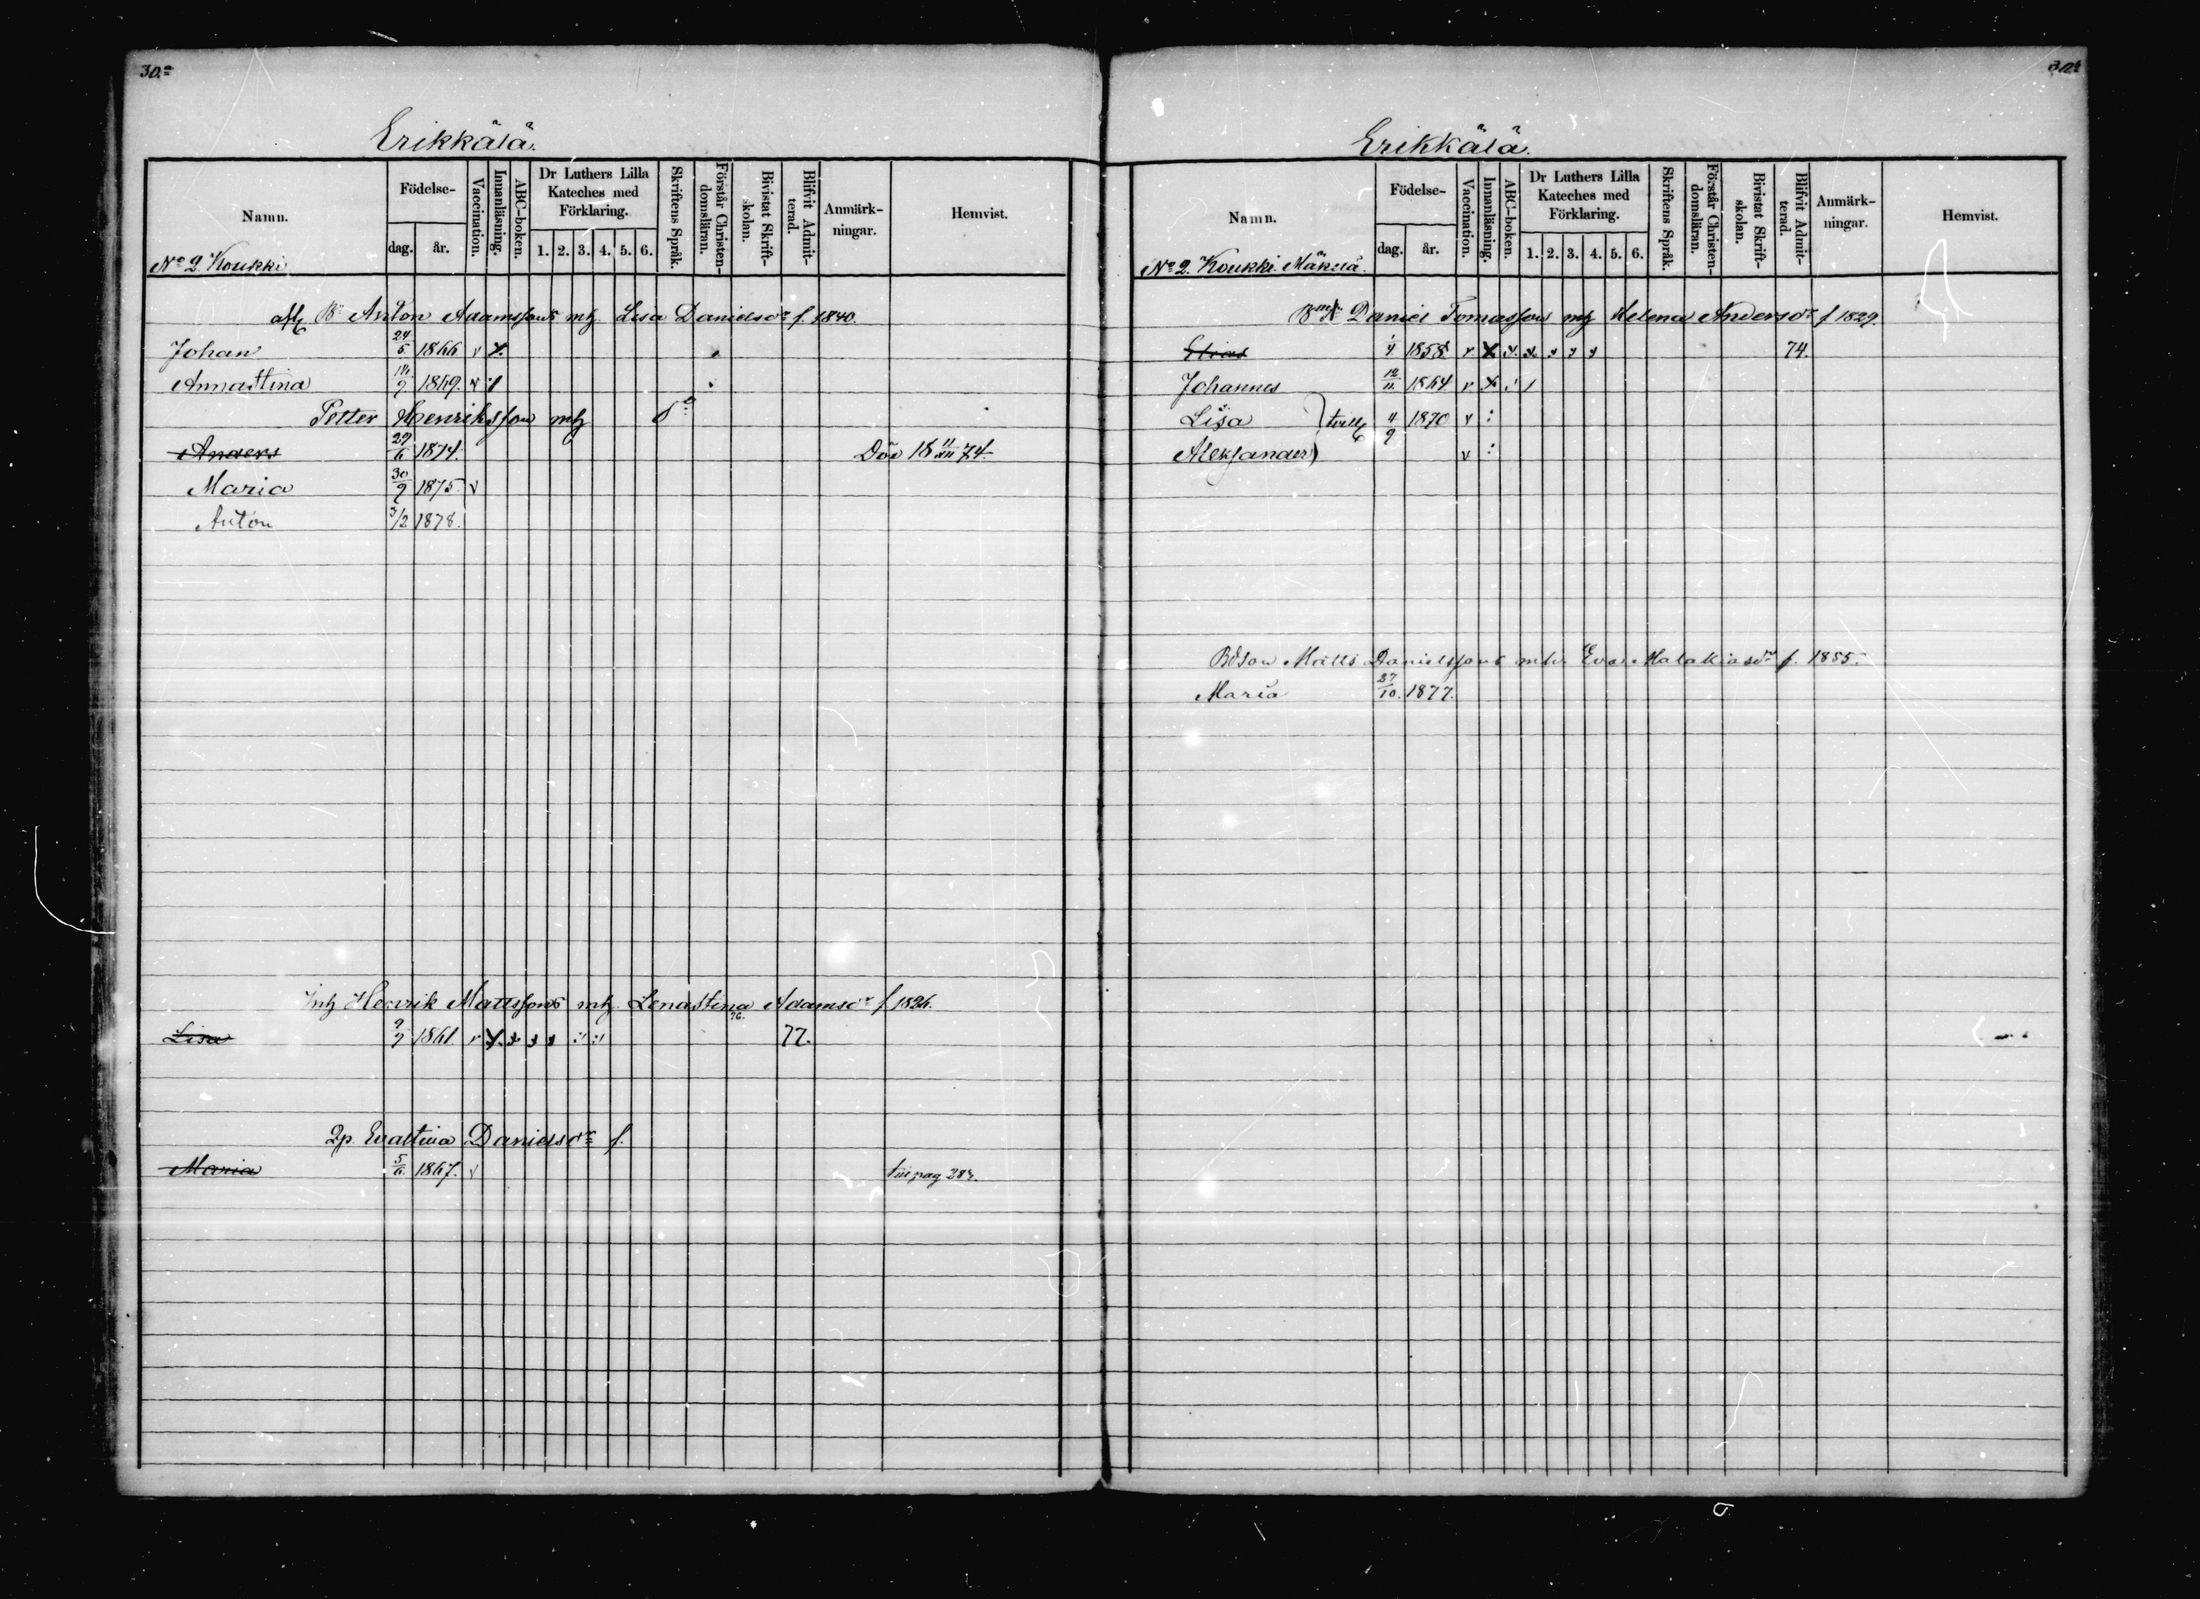 30.a
Erikkälä.
Namn.
Födelse-
dag.
år.
Vaccination.
Innanläsning.
ABC-boken.
Dr Luthers Lilla Kateches med Förklaring.
1. 2. 3. 4. 5. 6.
Skriftens Språk.
Förstår Christen-domsläran.
Bivistat Skrift-skolan.
Blifvit Admit-terad.
Anmärk-ningar.
Hemvist.
No 2. Koukki
afl. Bn Anton Adamssons mh. Lisa Danielsdr f. 1840.
Johan 24/5 1866 v x.
Annastina 1869. v
Petter Henriksson mh do
Anders 29/6 1874. Död 18 11/XII 74.
Maria 30/9 1875. v
Anton 3/2 1878.
Inh Henrik Mattssons mh. Lenastina Adamsdr f. 1826.
76.
Lisa 9/9 1861. v x x x x 77.
Qp. Evastina Danielsdr f.
Maria 5/6 1867. v til pag 284.
Erikkälä.
Namn.
Födelse-
dag.
år.
Vaccination.
Innanläsning.
ABC-boken.
Dr Luthers Lilla Kateches med Förklaring.
1. 2. 3. 4. 5. 6.
Skriftens Språk.
Förstår Christen-domsläran.
Bivistat Skrift-skolan.
Blifvit Admit-terad.
Anmärk-ningar.
Hemvist.
No 2. Koukki. Mäkelä.
Daniel Tomasson mh Helena Andersdr f 1829.
Elias 1/4 1858. v x x x x x x 74.
Johannes 12/11 1864. v x
Lisa } tvill. 4/9 1870 v :
Aleksander) v :
Bdson Matts Danielssons mh. Eva Malakiasdr f. 1855.
Maria 27/10. 1877.